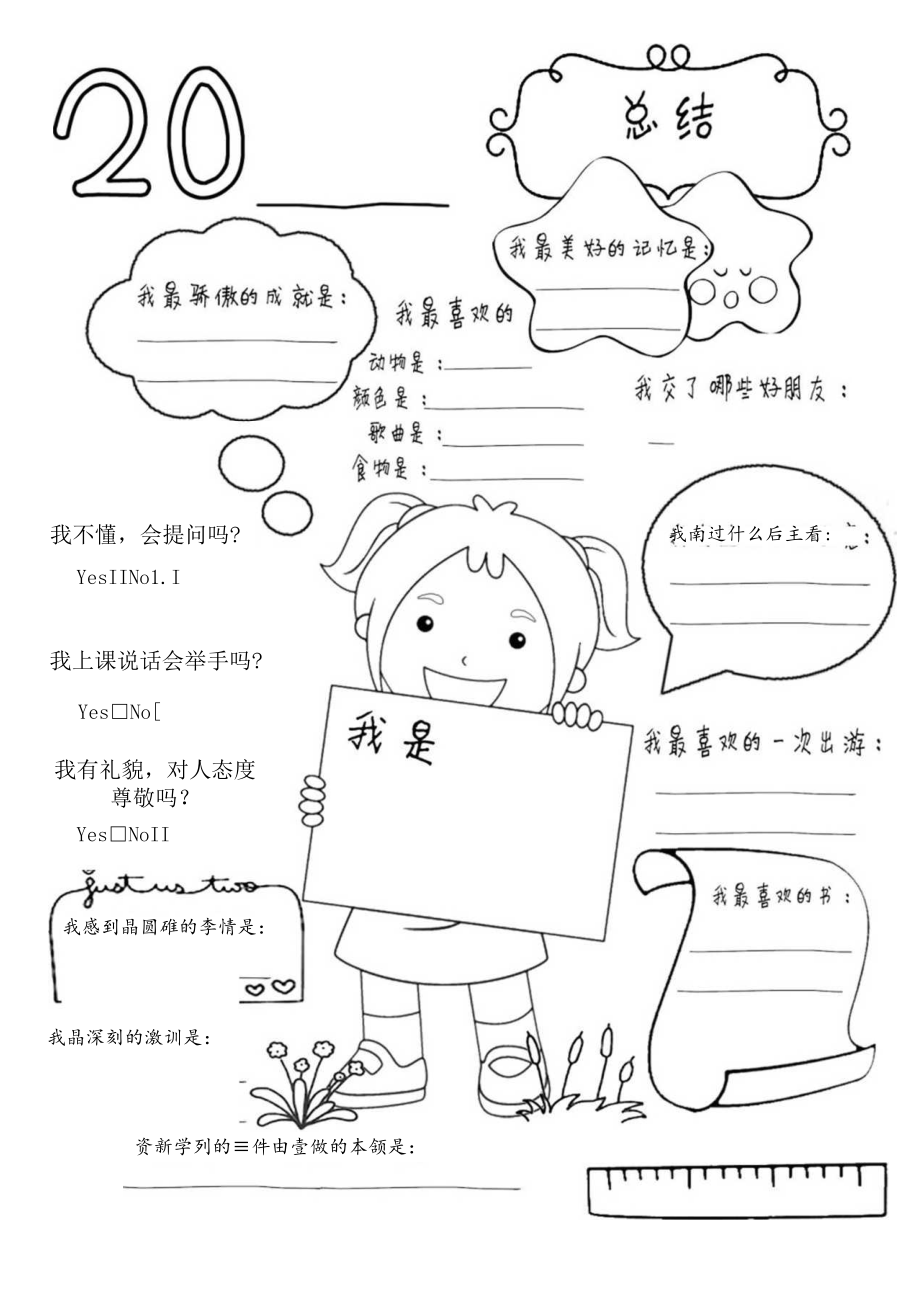 20
总结
我最美好的记忆是：
我最骄傲的成就是：
我最喜欢的
动物是：
颜色是：
歌曲是：
食物是：
我交了哪些好朋友：
我不懂，会提问吗?
YesIINo1.I
我南过什么后主看:
我上课说话会举手吗?
Yes□No[
我是
我最喜欢的一次出游：
我有礼貌，对人态度
尊敬吗?
Yes□NoII
just us two
我最喜欢的书：
我感到晶圆碓的李情是:
我晶深刻的激训是:
资新学列的≡件由壹做的本颌是: